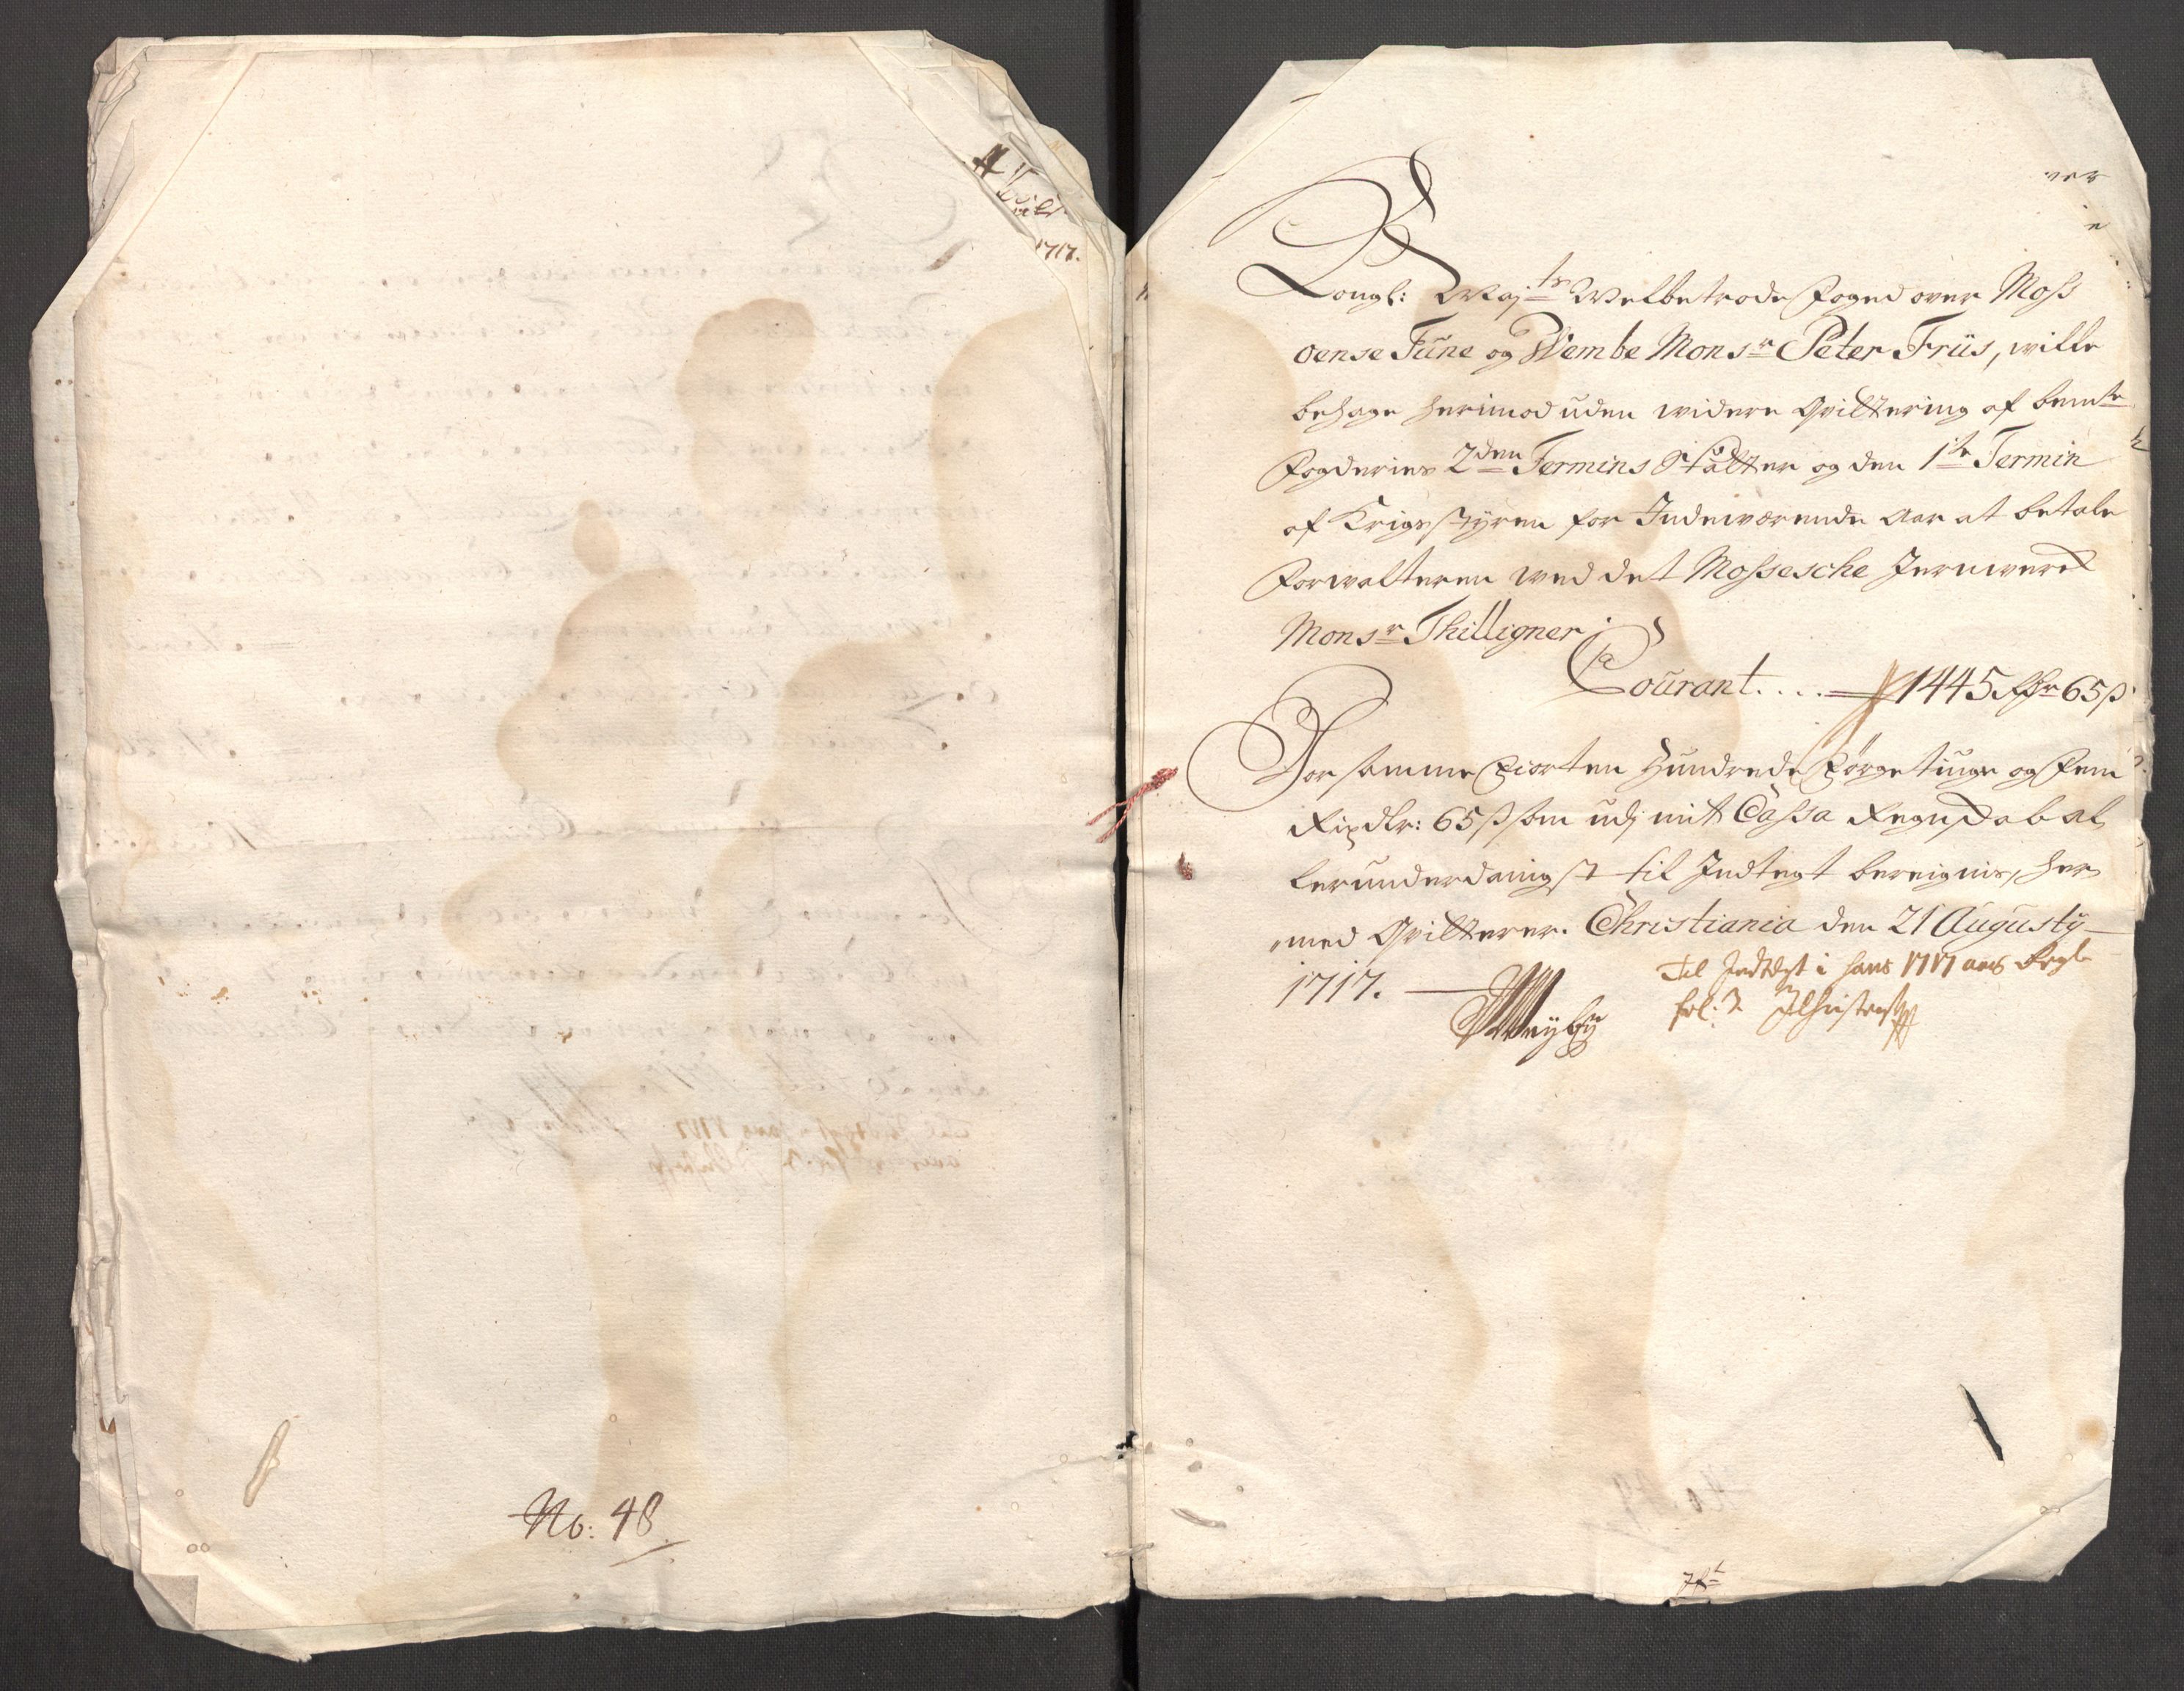 1717.
No: 48
Kongl: Maj.ts Welbetrode foged over Moss
oense Tune og Wembe Monsr Peter Friis, wille
behage herimod uden widere Qvittering af bemte
Fogderies 2den Termins Skatter og den 1te Termin
af Krigsstyren for Indewærende Aar at betale
Forwalteren wed det Mossesche Jernwerck
Monsr Thilligner
Courant.... 1445 Rdr 65 ß
For samme Fiorten Hundrede Förgetiuge og Fem
Rixdlr: 65 ß som udj mit Cassa Regnskab al
lerunderdanigst til Indtegt bereignis, her
med Qvitterer. Christiania den 21 Augusty
1717.
Til Indtegt i hans 1717 aars Regl
fol: 2